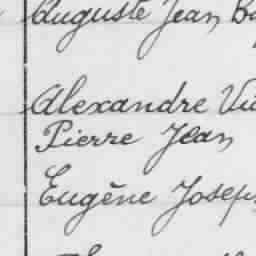 Auguste Jean
Alexandre
Pierre Jean
Eugène Joseph